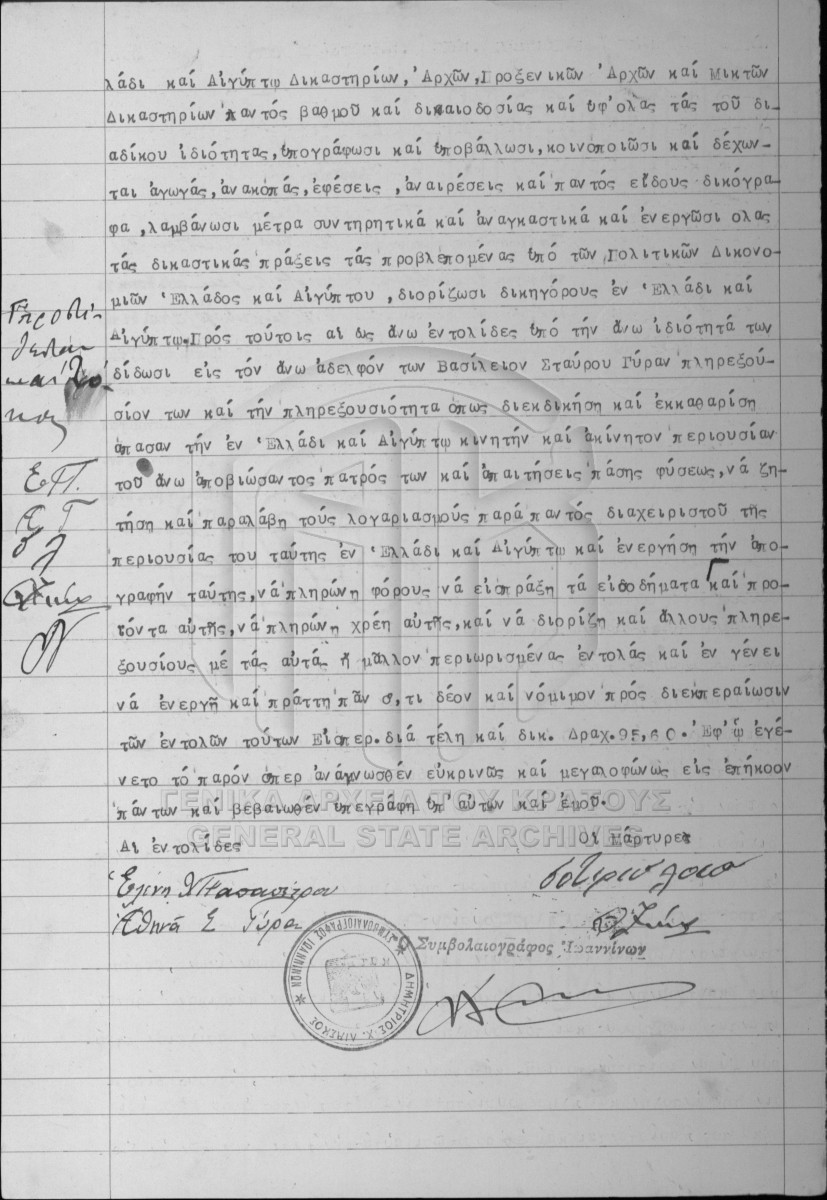 λάδι καί Αἰγύπτῳ Δικαστηρίων, Ἀρχῶν, Προξενικῶν Ἀρχῶν καί Μικτῶν
Δικαστηρίων παντός βαθμοῦ καί δικαιοδοσίας καί ὑφ'ολας τάς τοῦ δι-
αδίκου ἰδιότητας, ὑπογράφωσι καί ὑποβάλλωσι, κοινοποιῶσι καί δέχων-
ται ἀγωγάς, ἀνακοπάς, ἐφέσεις, ἀναιρέσεις καί παντός εἴδους δικόγρα-
φα, λαμβάνωσι μέτρα συντηρητικά καί ἀναγκαστικά καί ἐνεργῶσι ολας
τάς δικαστικάς πράξεις τάς προβλεπομένας ὑπό τῶν Πολιτικῶν Δικονο-
μιῶν Ἑλλάδος καί Αἰγύπτου, διορίζωσι δικηγόρους ἐν Ἑλλάδι καί
Αἰγύπτῳ. Πρός τούτοις αἱ ὡς ἄνω ἐντολίδες ὑπό τήν ἄνω ἰδιότητά των
δίδωσι εἰς τόν ἄνω ἀδελφόν των Βασίλειον Σταύρου Γύραν πληρεξού-
σίον των καί τήν πληρεξουσιότητα ὅπως διεκδικήση καί ἐκκαθαρίση
ἅπασαν τήν ἐν Ἑλλάδι καί Αἰγύπτῳ κινητήν καί ἀκίνητον περιουσίαν
τοῦ ἄνω ἀποβιώσαντος πατρός των καί ἀπαιτήσεις πάσης φύσεως, νά ζη-
τήση καί παραλάβη τούς λογαριασμούς παρά παντός διαχειριστοῦ τῆς
περιουσίας του ταύτης ἐν Ἑλλάδι καί Αἰγύπτῳ καί ἐνεργήση τήν ἀπο-
γραφήν ταύτης, νά πληρώνη φόρους νά εἰσπράξη τά εἰσοδήματα καί προ-
ϊόντα αὐτῆς, νά πληρώνη χρέη αὐτῆς, καί νά διορίζη καί ἄλλους πληρε-
ξουσίους μέ τάς αὐτάς ἤ μᾶλλον περιωρισμένας ἐντολάς καί ἐν γένει
νά ἐνεργῆ καί πράττη πᾶν ὅ,τι δέον καί νόμιμον πρός διεκπεραίωσιν
τῶν ἐντολῶν τούτων Εἰσπρ. διά τέλη καί δικ. Δραχ. 95,60. Ἐφ' ᾧ ἐγέ-
νετο τό παρόν ὅπερ ἀναγνωσθέν εὐκρινῶς καί μεγαλοφώνως εἰς ἐπήκοον
πάντων καί βεβαιωθέν ὑπεγράφη ὑπ'αὐτῶν καί ἐμοῦ.
ΓΕΝΙΚΑ ΑΡΧΕΙΑ ΤΟΥ ΚΡΑΤΟΥΣ
GENERAL STATE ARCHIVES
Αἱ ἐντολίδες
Οἱ Μάρτυρες
Ἑλένη Χ Παπασπύρου
Ἀθηνᾶ Σ Γύρα
Ὁ Συμβολαιογράφος Ἰωαννίνων
ΔΗΜΗΤΡΙΟΣ Χ. ΛΙΜΕΚΟΣ
ΣΥΜΒΟΛΑΙΟΓΡΑΦΟΣ ΙΩΑΝΝΙΝΩΝ